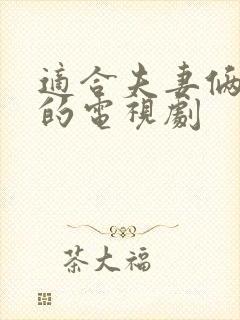 適合夫妻倆
的電視劇
茶大福